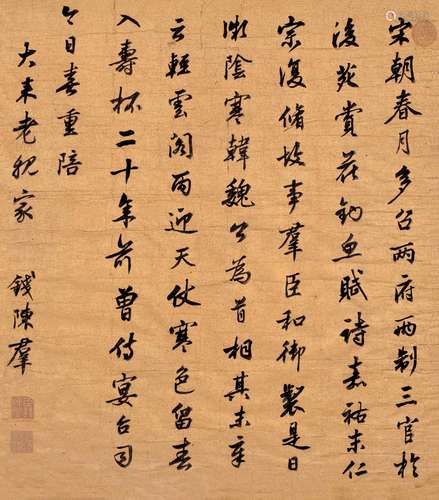 宋朝春月多召兩府兩制三官於
後苑賞花釣魚賦詩嘉祐末仁
宗復脩故事羣臣和御製是日
微陰寒韓魏公為首相其末章
云輕雲閣雨迎天仗寒色留春
入壽杯二十年前曾侍宴台司
今日喜重陪
大來老親家 錢陳羣